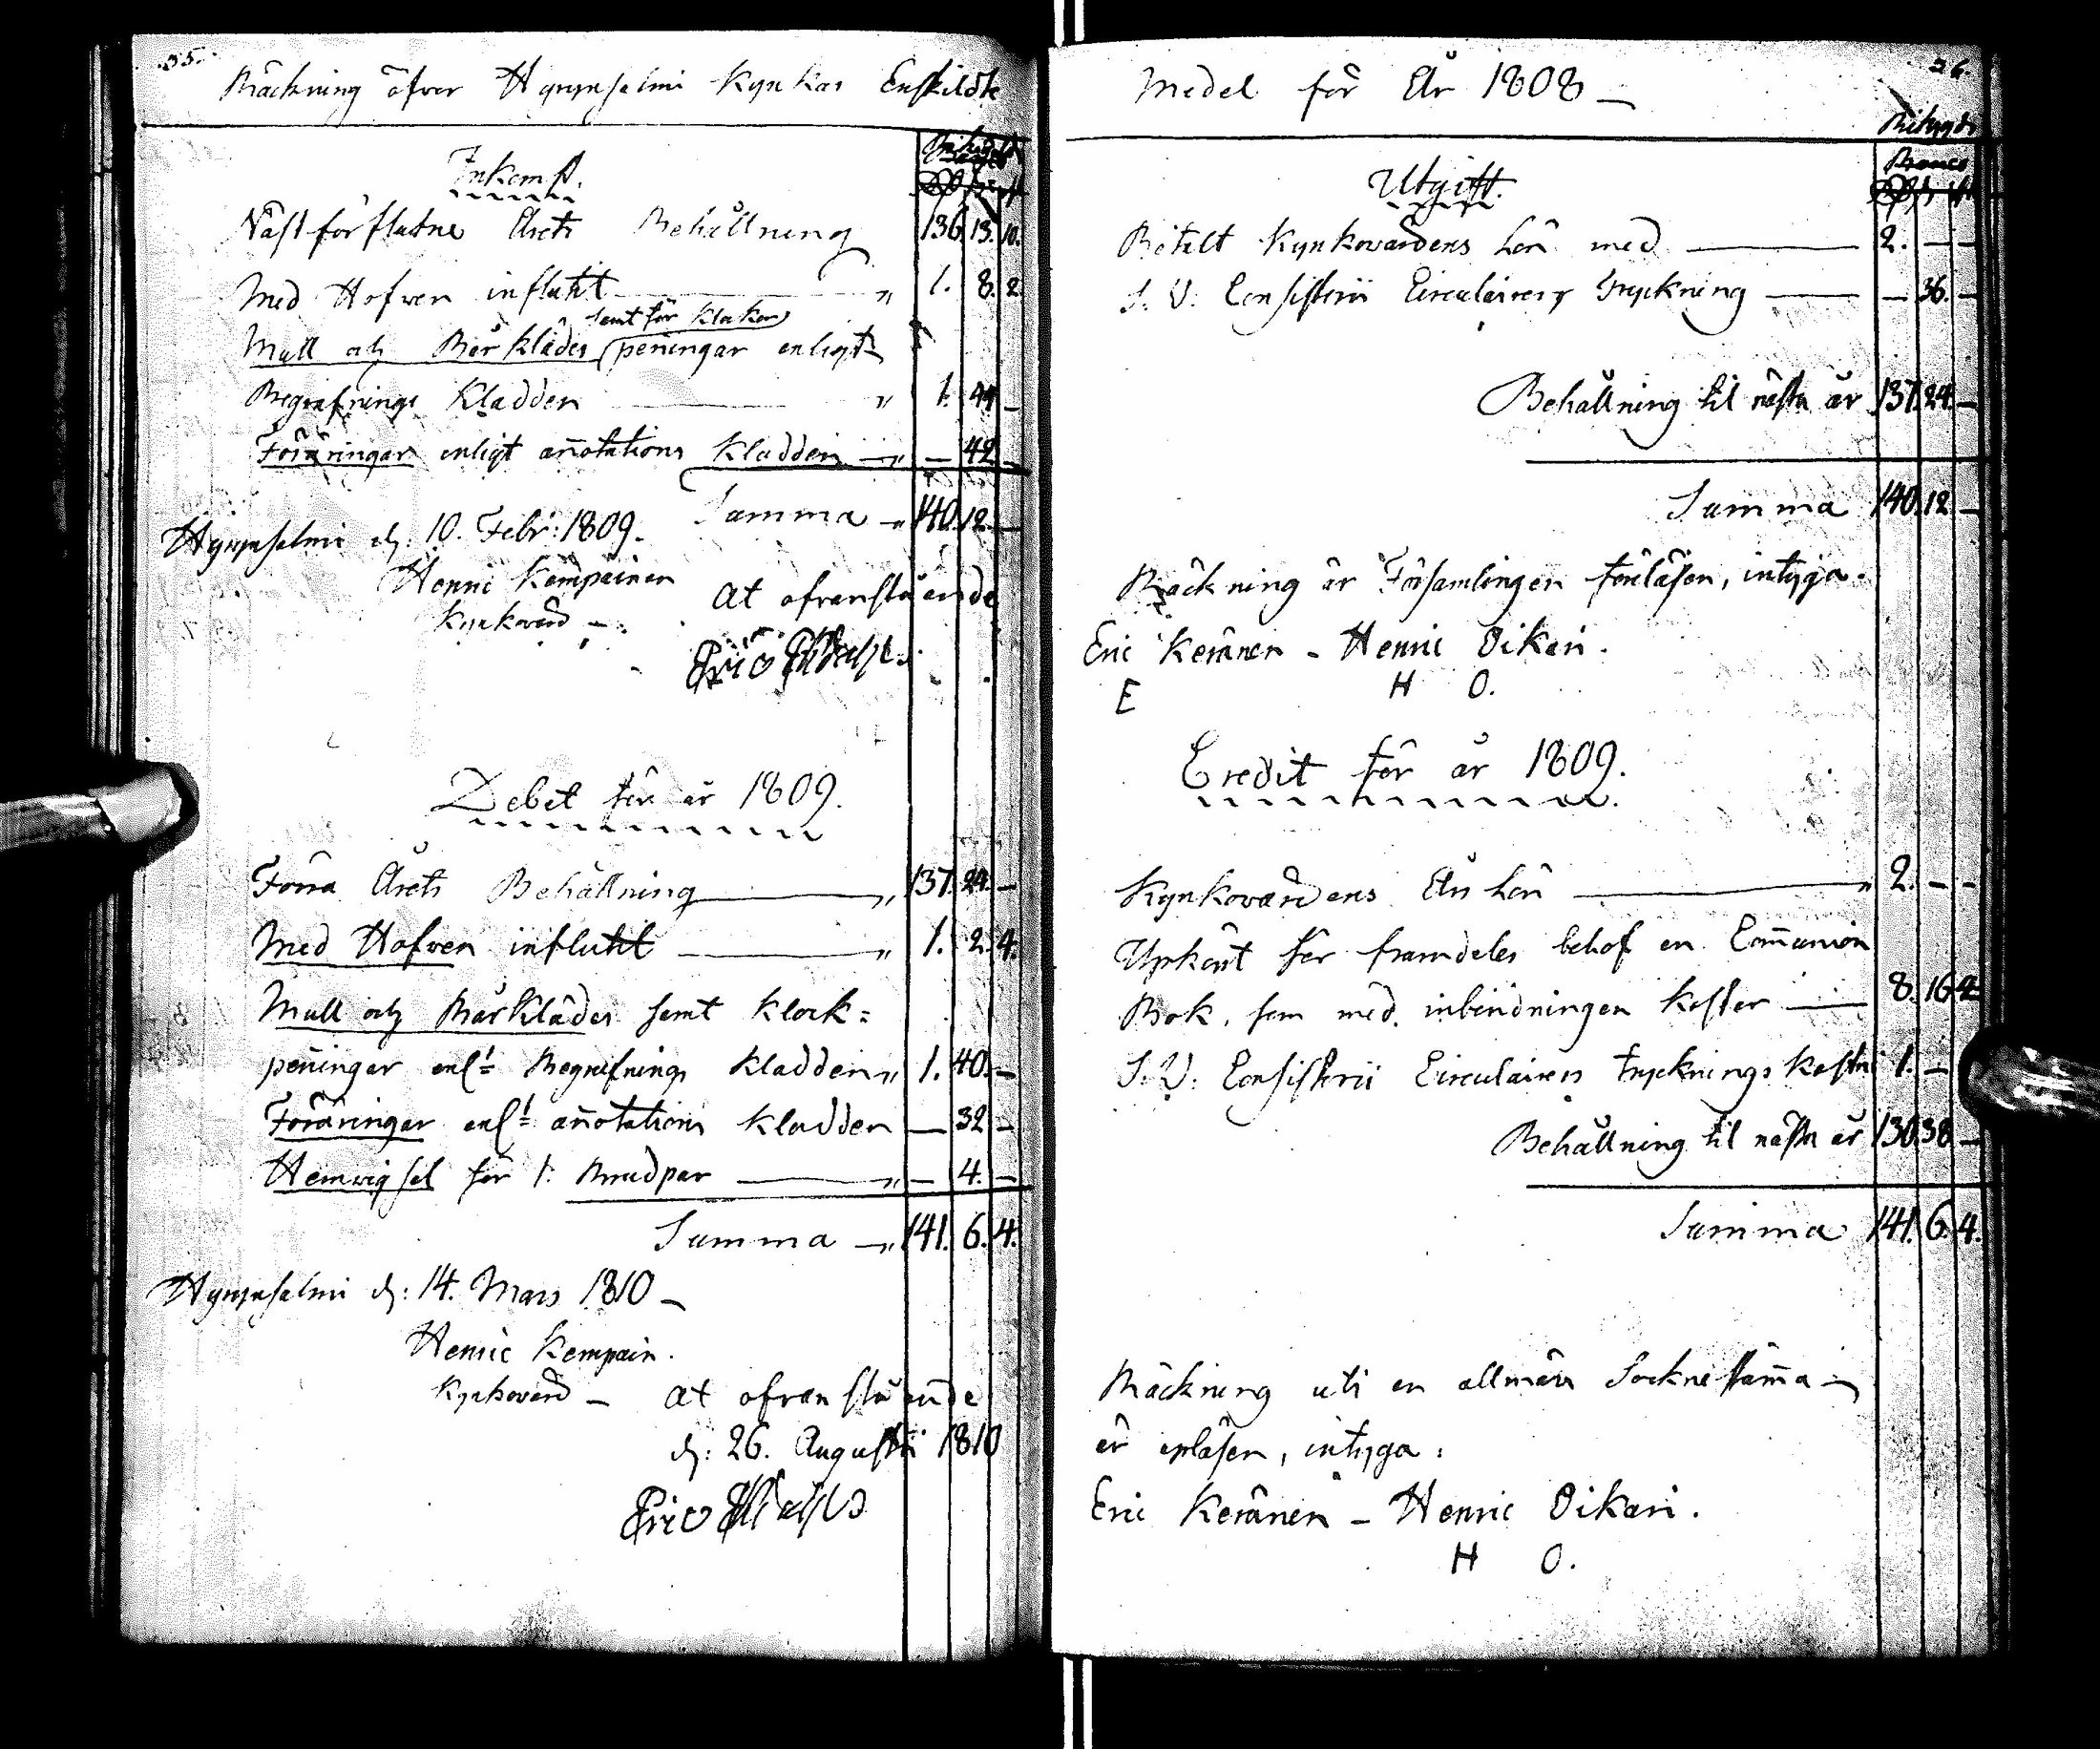 35.
Räckning öfver Hyrynsalmi Kyrkas Enskildte
Inkomst.
Näst förflutne Årets Behållning 136. 13. 10.
Med Hofven influtit — „ 1. 8. 2
samt för klockor
Mull och Bårklädes peñingar enligt
Begrafnings Kladden — „ 1. 44 —
Föräringar enligt añotations Kladden — „ — 42 —
Summa — „ 140. 12. —
Hyrynsalmi d: 10. Febr: 1809.
Henric Kempainen
Kyrkovärd —
At ofvanstående
Eric
Debet för år 1809.
Förra Årets Behållning — „ 137. 24. —
Med Hofven influtit — „ 1. 2. 4.
Mull och Bårklädes samt Klock=
peñingar enl:t Begrafnings Kladden „ 1. 40. —
Föräringar enl:t añotations Kladden — 32 —
Hemvigsel för 1. Brudpar — „ — 4. —
Summa — „ 141. 6. 4.
Hyrynsalmi d: 14. Mars 1810 —
Henric Kempain.
Kyrkovärd —
At ofvanstående
d: 26. Augusti 1810
Eric
36.
Medel för År 1808 —
Riksgds
Banco
Utgift.
Betalt Kyrkovärdens Lön med — 2. — —
S. V. Consistorii Circulairers Tryckning — — 36. —
Behållning til nästa år 137. 24. —
Summa 140. 12 —
Räckning är Församlingen föreläsen, intyga.
Eric Keränen – Henric Oikari.
E H O.
Credit för år 1809.
Kyrkovärdens Års Lön — „ 2. — —
Upköpt för framdeles behof en Com̃union
Bok, som med inbindningen kostar — 8. 16 4
S. V. Consistorii Circulairers trycknings kostn 1. —
Behållning til nästa år 130 38 —
Summa 141. 6. 4.
Räckning uti en allmän Sockne stäm̃a
är upläsen, intyga:
Eric Keränen – Henric Oikari.
H O.